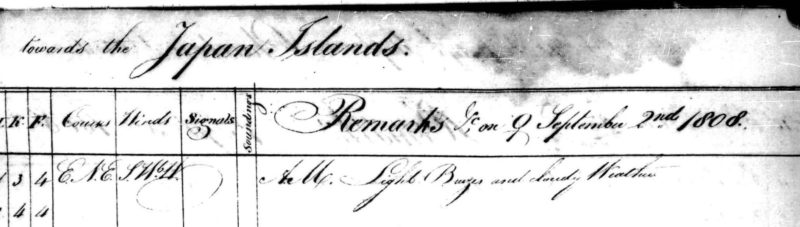 towards the Japan Islands.
K. F. Courses Winds Signals Soundings Remarks &c. on ♀ September 2nd 1808.
3 4 E.N.E S.Wb.W. A.M. Light Breezes and cloudy Weather
4 4